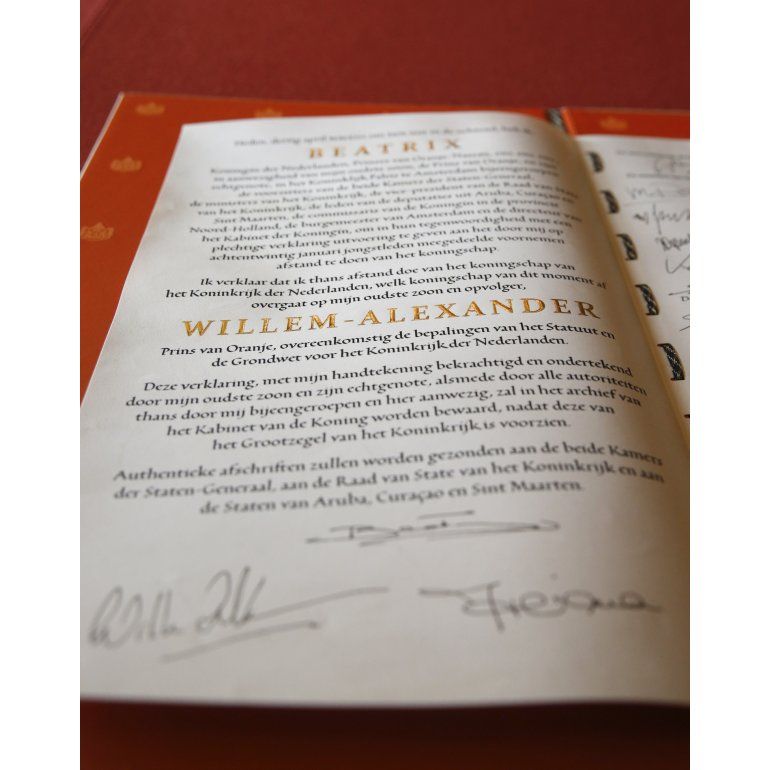 Heden, dertig april
BEATRIX
Koningin der Nederlanden, Prinses van Oranje-Nassau, enz. enz. enz.
in aanwezigheid van mijn oudste zoon, de Prins van Oranje, en zijn
echtgenote, in het Koninklijk Paleis te Amsterdam bijeengeroepen
de voorzitters van de beide Kamers der Staten-Generaal,
de ministers van het Koninkrijk, de vice-president van de Raad van State
van het Koninkrijk, de leden van de deputaties uit Aruba, Curaçao en
Sint Maarten, de commissaris van de Koningin in de provincie
Noord-Holland, de burgemeester van Amsterdam en de directeur van
het Kabinet der Koningin, om in hun tegenwoordigheid met een
plechtige verklaring uitvoering te geven aan het door mij op
achtentwintig januari jongstleden meegedeelde voornemen
afstand te doen van het koningschap.
Ik verklaar dat ik thans afstand doe van het koningschap van
het Koninkrijk der Nederlanden, welk koningschap van dit moment af
overgaat op mijn oudste zoon en opvolger,
WILLEM-ALEXANDER
Prins van Oranje, overeenkomstig de bepalingen van het Statuut en
de Grondwet voor het Koninkrijk der Nederlanden.
Deze verklaring, met mijn handtekening bekrachtigd en ondertekend
door mijn oudste zoon en zijn echtgenote, alsmede door alle autoriteiten
thans door mij bijeengeroepen en hier aanwezig, zal in het archief van
het Kabinet van de Koning worden bewaard, nadat deze van
het Grootzegel van het Koninkrijk is voorzien.
Authentieke afschriften zullen worden gezonden aan de beide Kamers
der Staten-Generaal, aan de Raad van State van het Koninkrijk en aan
de Staten van Aruba, Curaçao en Sint Maarten.